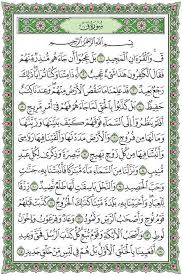 سُورَةُ قٓ
بِسْمِ ٱللَّهِ ٱلرَّحْمَٰنِ ٱلرَّحِيمِ
قٓ وَٱلْقُرْءَانِ ٱلْمَجِيدِ ١ بَلْ عَجِبُوٓا۟ أَن جَآءَهُم مُّنذِرٌ مِّنْهُمْ
فَقَالَ ٱلْكَٰفِرُونَ هَٰذَا شَىْءٌ عَجِيبٌ ٢ أَءِذَا مِتْنَا وَكُنَّا تُرَابًا ذَٰلِكَ
رَجْعٌۢ بَعِيدٌ ٣ قَدْ عَلِمْنَا مَا تَنقُصُ ٱلْأَرْضُ مِنْهُمْ وَعِندَنَا كِتَٰبٌ
حَفِيظٌۢ ٤ بَلْ كَذَّبُوا۟ بِٱلْحَقِّ لَمَّا جَآءَهُمْ فَهُمْ فِىٓ أَمْرٍ مَّرِيجٍ ٥
أَفَلَمْ يَنظُرُوٓا۟ إِلَى ٱلسَّمَآءِ فَوْقَهُمْ كَيْفَ بَنَيْنَٰهَا وَزَيَّنَّٰهَا
وَمَا لَهَا مِن فُرُوجٍ ٦ وَٱلْأَرْضَ مَدَدْنَٰهَا وَأَلْقَيْنَا فِيهَا رَوَٰسِىَ
وَأَنۢبَتْنَا فِيهَا مِن كُلِّ زَوْجٍۭ بَهِيجٍ ٧ تَبْصِرَةً وَذِكْرَىٰ لِكُلِّ عَبْدٍ
مُّنِيبٍ ٨ وَنَزَّلْنَا مِنَ ٱلسَّمَآءِ مَآءً مُّبَٰرَكًا فَأَنۢبَتْنَا بِهِۦ جَنَّٰتٍ
وَحَبَّ ٱلْحَصِيدِ ٩ وَٱلنَّخْلَ بَاسِقَٰتٍ لَّهَا طَلْعٌ نَّضِيدٌ ١٠
رِّزْقًا لِّلْعِبَادِ وَأَحْيَيْنَا بِهِۦ بَلْدَةً مَّيْتًا كَذَٰلِكَ ٱلْخُرُوجُ ١١ كَذَّبَتْ
قَبْلَهُمْ قَوْمُ نُوحٍ وَأَصْحَٰبُ ٱلرَّسِّ وَثَمُودُ ١٢ وَعَادٌ وَفِرْعَوْنُ
وَإِخْوَٰنُ لُوطٍ ١٣ وَأَصْحَٰبُ ٱلْأَيْكَةِ وَقَوْمُ تُبَّعٍ كُلٌّ كَذَّبَ ٱلرُّسُلَ فَحَقَّ
وَعِيدِ ١٤ أَفَعَيِينَا بِٱلْخَلْقِ ٱلْأَوَّلِ بَلْ هُمْ فِى لَبْسٍ مِّنْ خَلْقٍ جَدِيدٍ ١٥